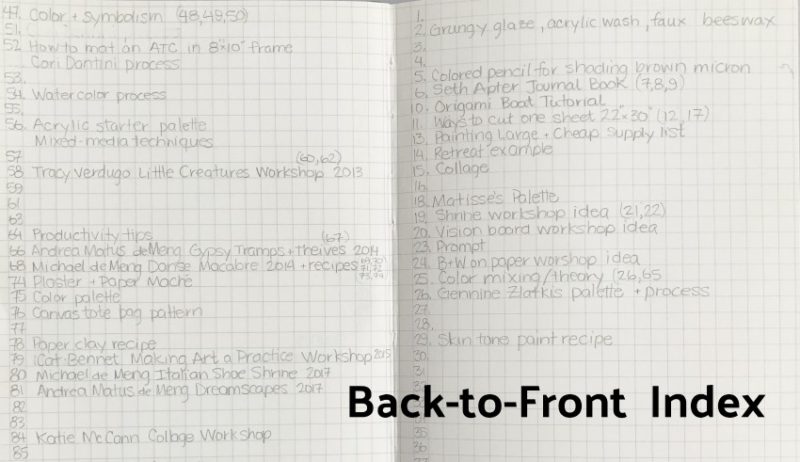 47. Color + Symbolism (48,49,50)
51.
52. How to mat an ATC in 8"x10" frame
Cori Dantini process
53.
54. Watercolor process
55.
56. Acrylic starter palette
Mixed-media techniques
57
(60,62)
58 Tracy Verdugo Little Creatures Workshop 2013
59
61
63
64 Productivity tips
(67)
66 Andrea Matus deMeng Gypsy Tramps + theives 2014
68 Michael de Meng Danse Macabre 2014 + recipes
74 Plaster + Paper Mache
75 Color palette
76 Canvas tote bag pattern
77
78 Paper clay recipe
79 Cat Bennet Making Art a Practice Workshop 2015
80 Michael de Meng Italian Shoe Shrine 2017
81 Andrea Matus de Meng Dreamscapes 2017
82
83
84 Katie McCann Collage Workshop
85
1.
2. Grungy glaze, acrylic wash, faux beeswax
3.
4.
5. Colored pencil for shading brown micron
6. Seth Apter Journal Book (7,8,9)
10. Origami Boat Tutorial
11. Ways to cut one sheet 22"x30" (12,17)
13. Painting Large + Cheap supply list
14. Retreat example
15. Collage
16.
18. Matisse's Palette
19. Shrine workshop idea (21,22)
20. Vision board workshop idea
23. Prompt
24. B+W on paper worshop idea
25. Color mixing/theory (26,65
26. Gennine Zlatkis palette + process
27.
28.
29. Skin tone paint recipe
30.
31
Back-to-Front Index
35
36